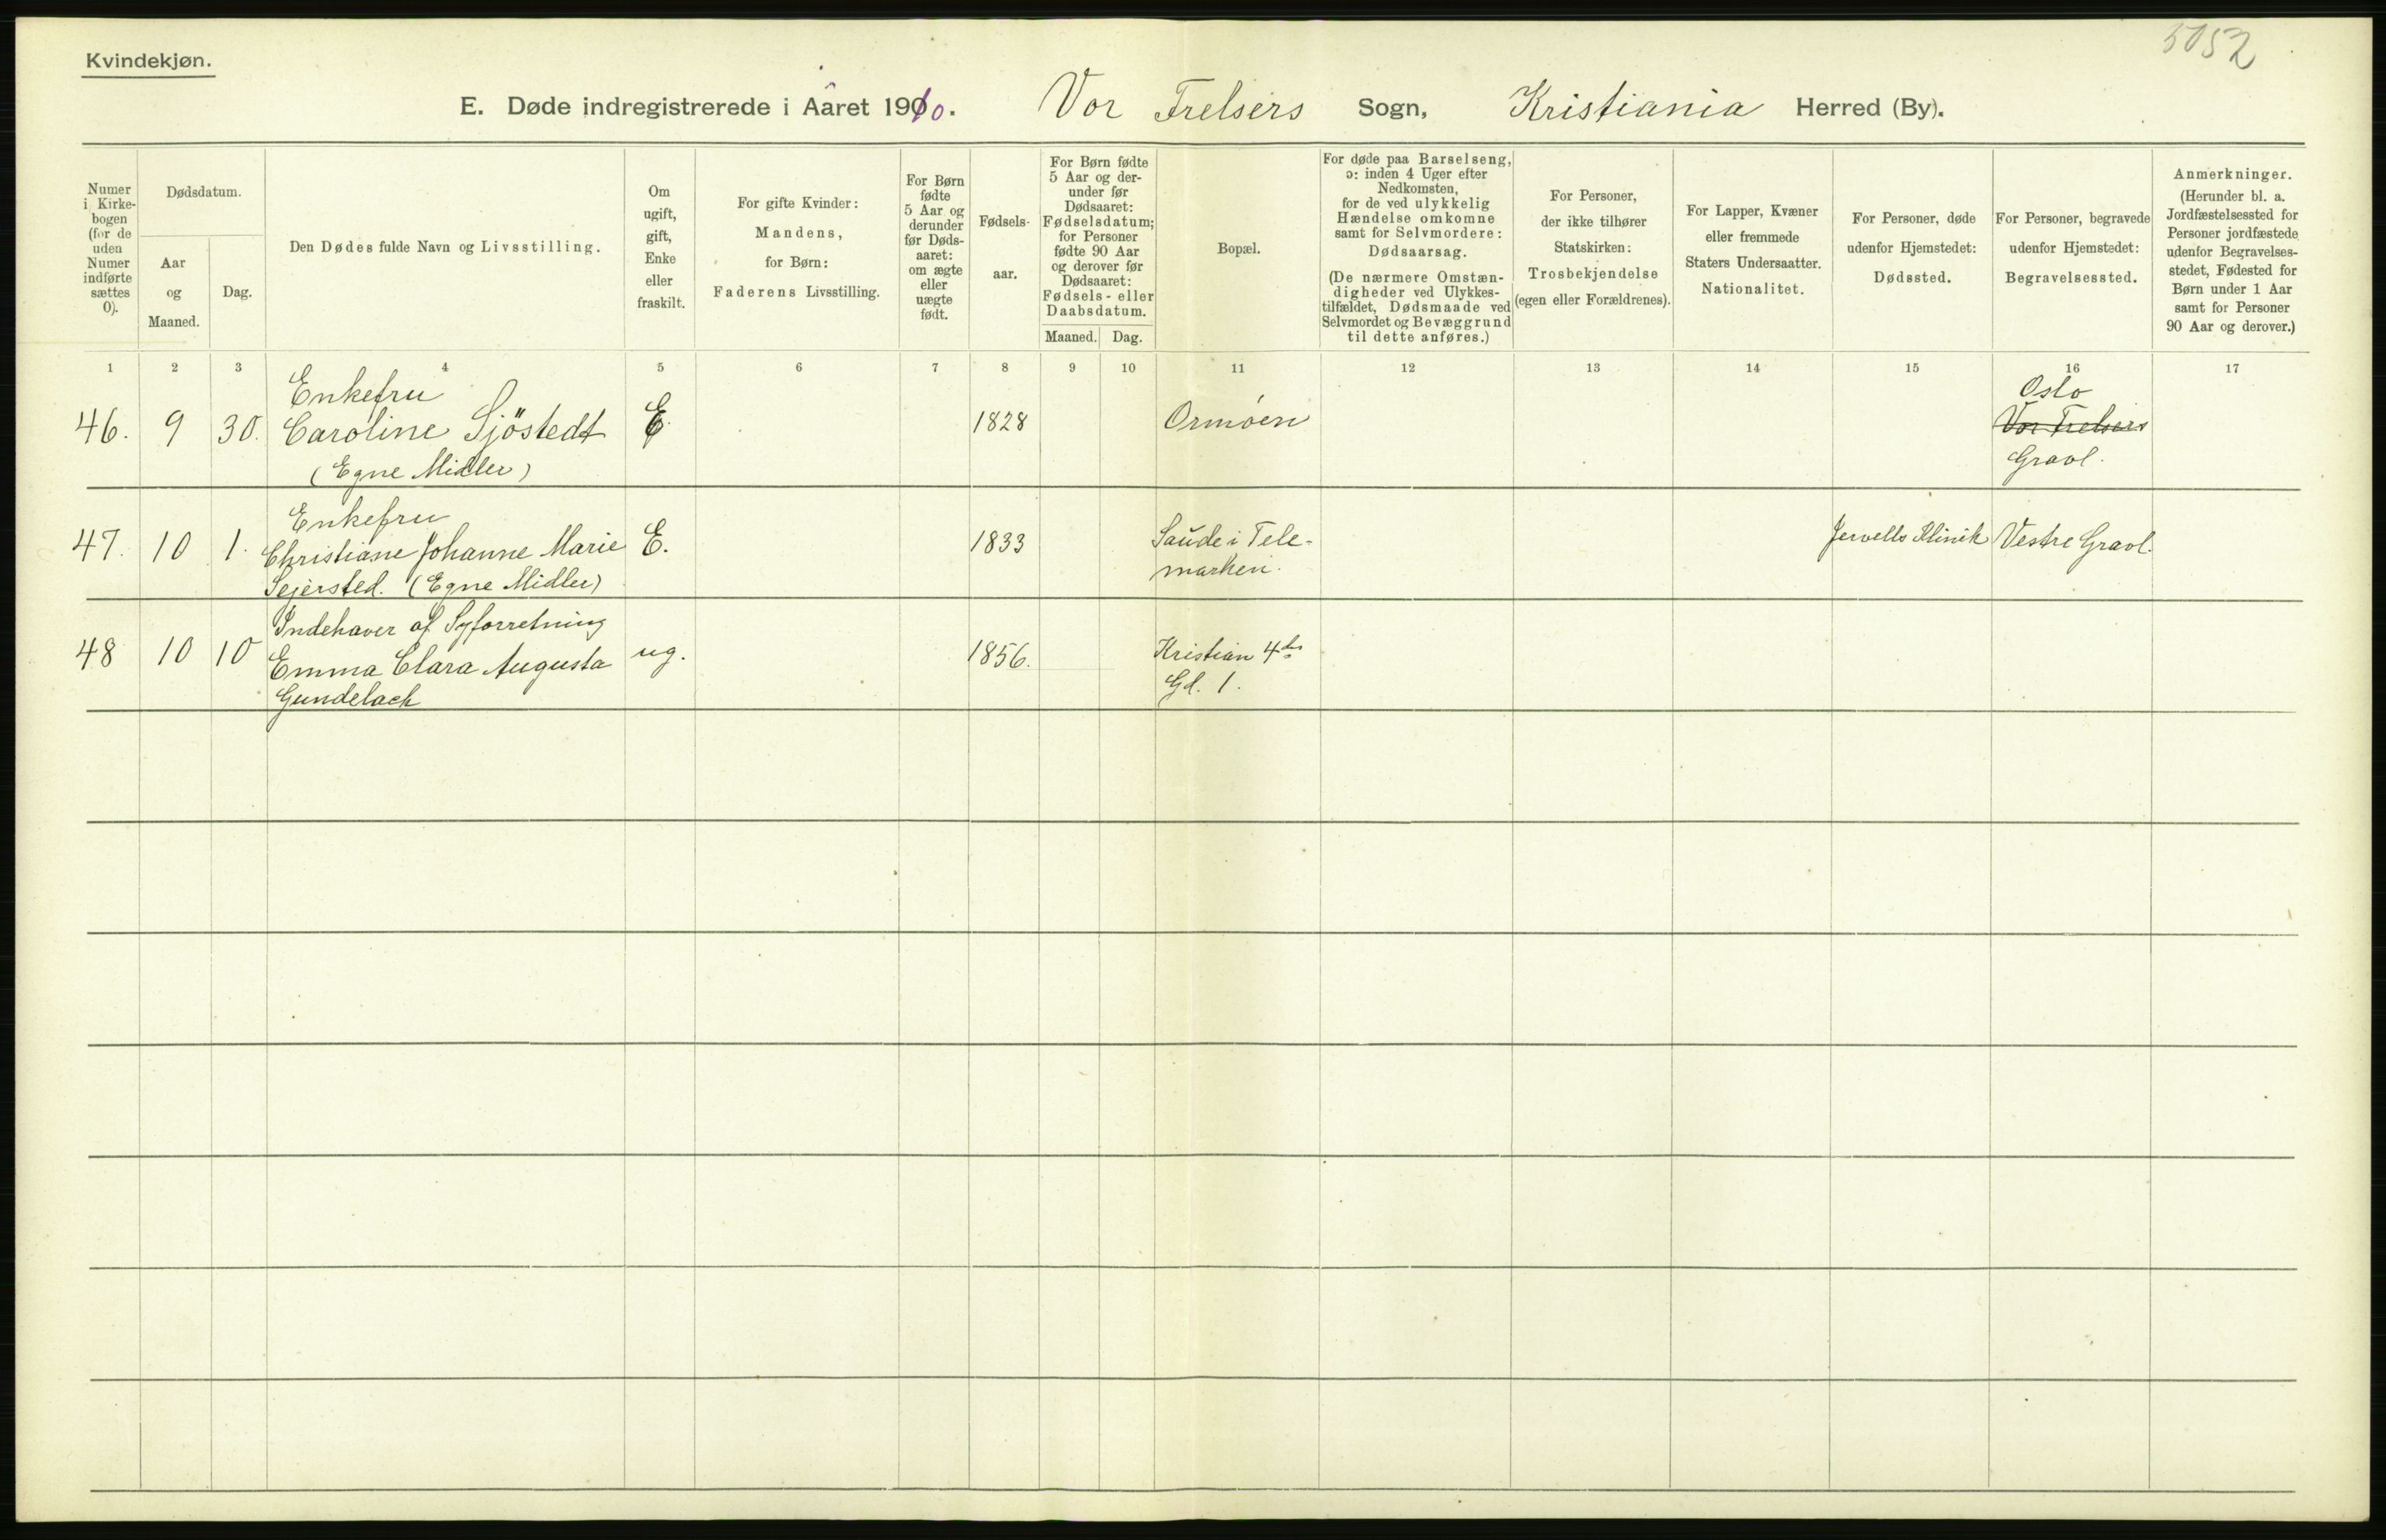 5052
Kvindekjøn.
E. Døde indregistrerede i Aaret 1910. Vor Frelsers Sogn, Kristiania Herred (By).
Numer
i Kirke-
bogen
(for de
uden
Numer
indførte
sættes
0).
Dødsdatum.
Aar
og
Maaned.
Dag.
Den Dødes fulde Navn og Livsstilling.
Om
ugift,
gift,
Enke
eller
fraskilt.
For gifte Kvinder:
Mandens,
for Børn:
Faderens Livsstilling.
For Børn
fødte
5 Aar og
derunder
før Døds-
aaret:
om ægte
eller
uægte
født.
Fødsels-
aar.
For Børn fødte
5 Aar og der-
under før
Dødsaaret:
Fødselsdatum;
for Personer
fødte 90 Aar
og derover før
Dødsaaret:
Fødsels- eller
Daabsdatum.
Maaned. Dag.
Bopæl.
For døde paa Barselseng,
ɔ: inden 4 Uger efter
Nedkomsten,
for de ved ulykkelig
Hændelse omkomne
samt for Selvmordere:
Dødsaarsag.
(De nærmere Omstæn-
digheder ved Ulykkes-
tilfældet, Dødsmaade ved
Selvmordet og Bevæggrund
til dette anføres.)
For Personer,
der ikke tilhører
Statskirken:
Trosbekjendelse
(egen eller Forældrenes).
For Lapper, Kvæner
eller fremmede
Staters Undersaatter.
Nationalitet.
For Personer, døde
udenfor Hjemstedet:
Dødssted.
For Personer, begravede
udenfor Hjemstedet:
Begravelsessted.
Anmerkninger.
(Herunder bl. a.
Jordfæstelsessted for
Personer jordfæstede
udenfor Begravelses-
stedet, Fødested for
Børn under 1 Aar
samt for Personer
90 Aar og derover.)
1 2 3 4 5 6 7 8 9 10 11 12 13 14 15 16 17
Enkefru Oslo
46. 9 30. Caroline Sjöstedt E. 1828 Ormøen Vor Frelsers
(Egne Midler) Gravl.
Enkefru
47. 10 1. Christiane Johanne Marie E. 1833 Saude i Tele- Jervells Klinik Vestre Gravl.
Sejersted. (Egne Midler) marken.
Indehaver af Syforretning
48 10 10 Emma Clara Augusta ug. 1856. Kristian 4des
Gundelach Gd. 1.